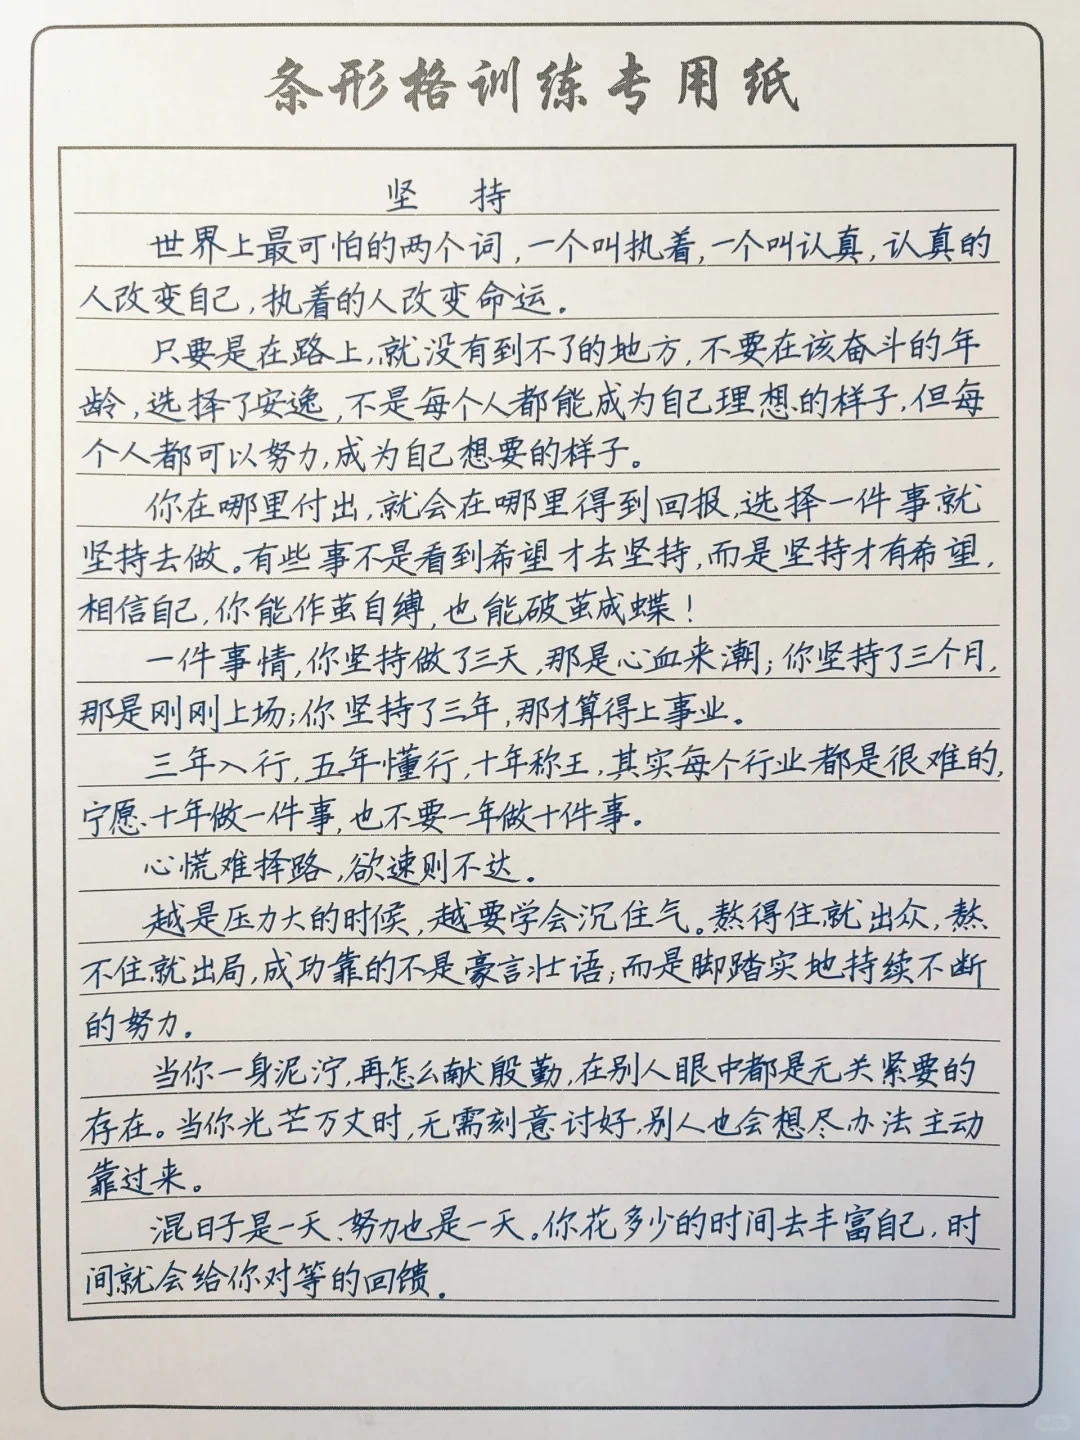 条形格训练专用纸
坚 持
世界上最可怕的两个词,一个叫执着,一个叫认真,认真的
人改变自己,执着的人改变命运。
只要是在路上,就没有到不了的地方,不要在该奋斗的年
龄,选择了安逸,不是每个人都能成为自己理想的样子,但每
个人都可以努力,成为自己想要的样子。
你在哪里付出,就会在哪里得到回报,选择一件事就
坚持去做。有些事不是看到希望才去坚持,而是坚持才有希望,
相信自己,你能作茧自缚,也能破茧成蝶!
一件事情,你坚持做了三天,那是心血来潮;你坚持了三个月,
那是刚刚上场;你坚持了三年,那才算得上事业。
三年入行,五年懂行,十年称王,其实每个行业都是很难的,
宁愿十年做一件事,也不要一年做十件事。
心慌难择路,欲速则不达。
越是压力大的时候,越要学会沉住气。熬得住就出众,熬
不住就出局,成功靠的不是豪言壮语;而是脚踏实地持续不断
的努力。
当你一身泥泞,再怎么献殷勤,在别人眼中都是无关紧要的
存在。当你光芒万丈时,无需刻意讨好,别人也会想尽办法主动
靠过来。
混日子是一天、努力也是一天。你花多少的时间去丰富自己,时
间就会给你对等的回馈。